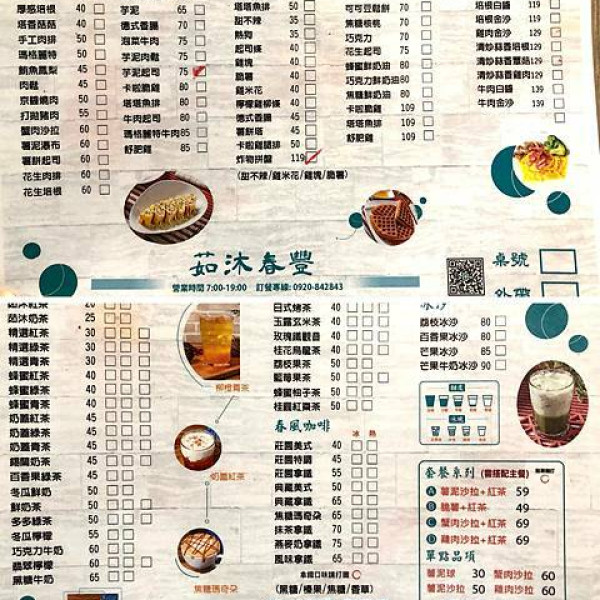 厚感培根 40
塔香菇菇 40
手工肉排 50
瑪格麗特 50
鮪魚鳳梨 45
肉鬆 45
京醬燒肉 50
打拋豬肉 55
蟹肉沙拉 60
薯泥瀑布 60
薯餅起司 60
花生肉排 60
花生培根 60
芋泥 65
德式香腸
泡菜牛肉
芋泥肉鬆
芋泥起司 75
卡啦脆雞 80
塔塔魚排 80
牛肉起司 80
瑪格麗特牛肉 85
舒肥雞 85
塔塔魚排
甜不辣 35
熱狗 35
起司條 40
雞塊 40
脆薯 40
雞米花 40
檸檬雞柳條 50
德式香腸 45
薯餅塔
卡啦雞腿排 50
炸物拼盤 119
(甜不辣/雞米花/雞塊/脆薯)
可可豆鬆餅 70
焦糖核桃 70
巧克力 70
花生起司 75
蜂蜜鮮奶油 80
巧克力鮮奶油 80
焦糖鮮奶油 80
卡啦脆雞 109
塔塔魚排
舒肥雞 109
培根白醬 119
培根金沙 129
雞肉金沙 129
清炒蒜香培根 129
清炒蒜香蕈菇 119
清炒蒜香雞肉 129
牛肉白醬 129
牛肉金沙 139
茹沐春豐
營業時間 7:00-19:00 訂餐專線: 0920-842843
桌號
外帶
茹沐紅茶 20
茹沐奶茶 25
精選紅茶 30
精選綠茶 30
精選青茶 30
蜂蜜紅茶 40
蜂蜜綠茶 40
蜂蜜青茶 40
奶蓋紅茶 45
奶蓋綠茶 45
奶蓋青茶 45
錫蘭奶茶 45
百香果綠茶 50
冬瓜鮮奶 50
鮮奶茶 50
多多綠茶 50
冬瓜檸檬 55
巧克力牛奶 60
翡翠檸檬 60
黑糖牛奶 65
柳橙青茶
奶蓋紅茶
焦糖瑪奇朵
日式烤茶 40
玉露玄米茶 40
玫瑰鐵觀音 40
桂花烏龍茶 40
荔枝果茶 50
藍莓果茶 50
蜂蜜柚子茶 50
桂圓紅棗茶 50
春風咖啡 冰 熱
莊園美式 40
莊園特調 45
莊園拿鐵 55
典藏美式 50
典藏拿鐵 65
焦糖瑪奇朵 65
抹茶拿鐵 70
燕麥奶拿鐵 75
風味拿鐵 65
拿鐵口味請打圈
(黑糖/榛果/焦糖/香草)
冰沙
荔枝冰沙 80
百香果冰沙 80
芒果冰沙 85
芒果牛奶冰沙 90
套餐系列 (需搭配主餐)
A 薯泥沙拉+紅茶 59
B 脆薯+紅茶 49
C 蟹肉沙拉+紅茶 69
D 雞肉沙拉+紅茶 69
單點品項
薯泥球 30 蟹肉沙拉 60
薯泥沙拉 50 雞肉沙拉 60